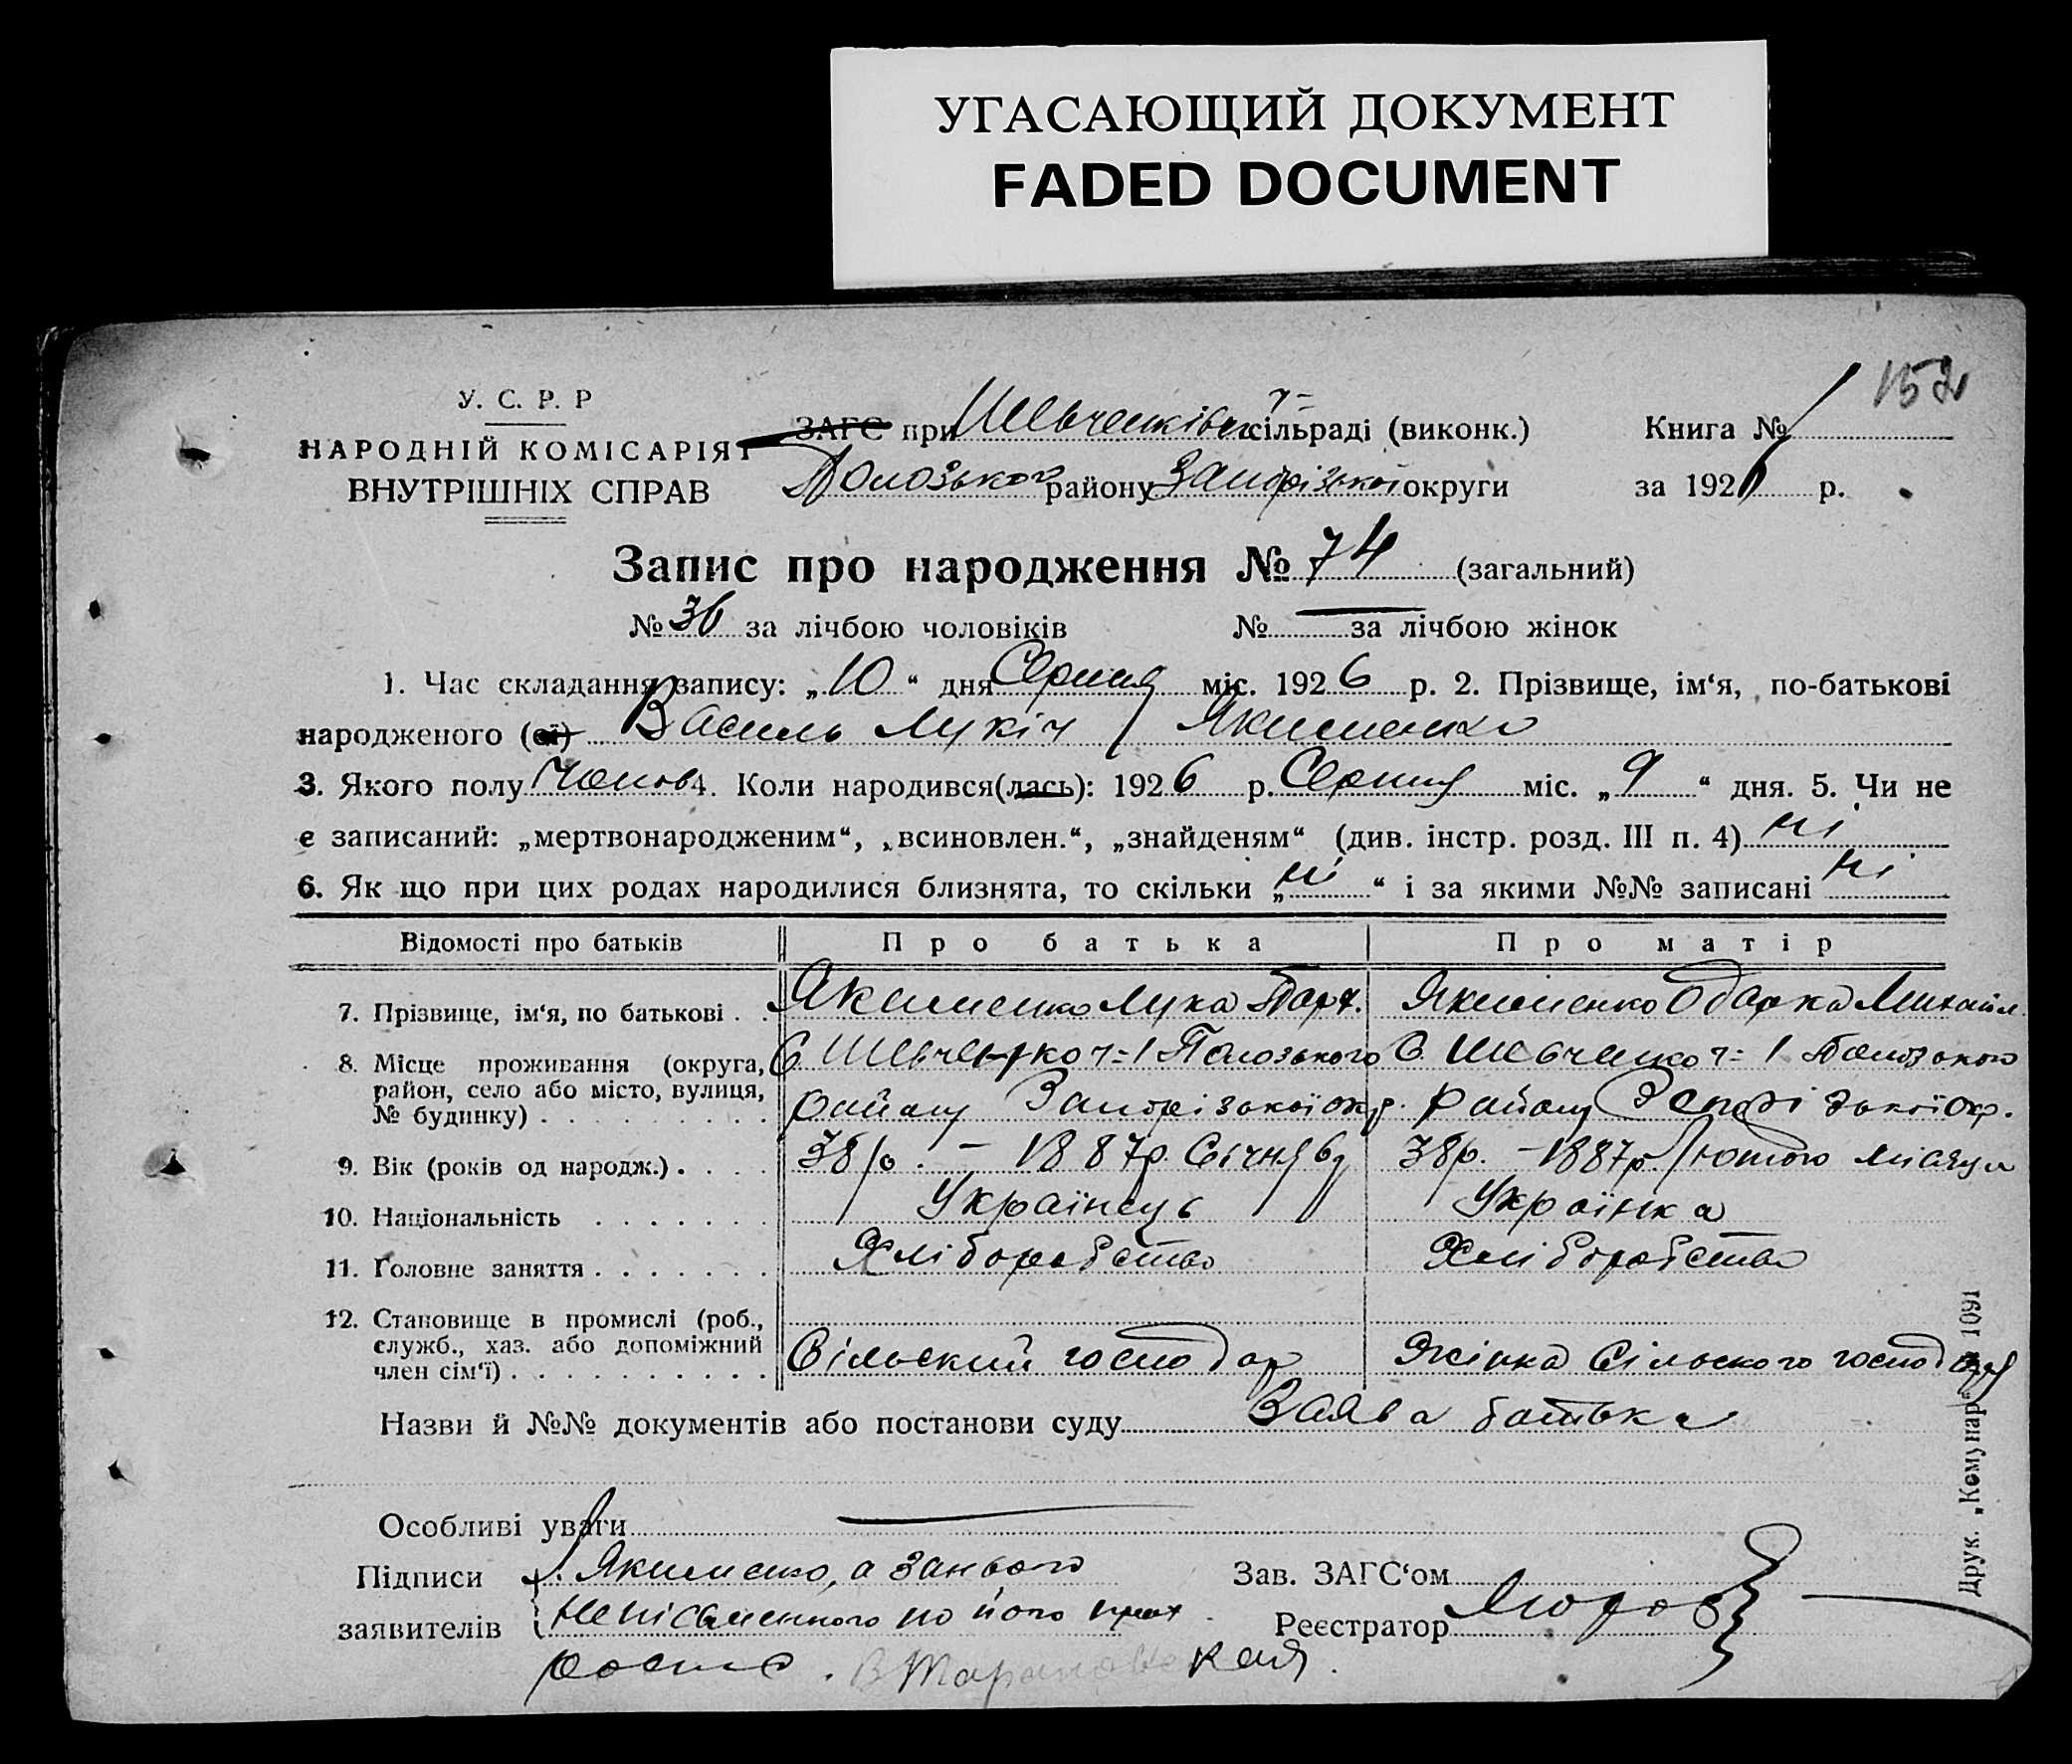 УГАСАЮЩИЙ ДОКУМЕНТ
FADED DOCUMENT
152
У. С. Р. Р
НАРОДНІЙ КОМІСАРІЯТ
ВНУТРІШНІХ СПРАВ
ЗАГС при Шевченківск ч= сільраді (виконк.)
Полозького району Запорізької округи
Книга № 1
за 1926 р.
Запис про народження № 74 (загальний)
№ 36 за лічбою чоловіків № — за лічбою жінок
1. Час складання запису: „10“ дня Серпня міс. 1926 р. 2. Прізвище, ім‘я, по-батькові
народженого (ої) Василь Лукіч Якименко
3. Якого полу Чолов 4. Коли народився(лась): 1926 р. Серпня міс. „9“ дня. 5. Чи не
є записаний: „мертвонародженим“, „всиновлен.“, „знайденям“ (див. інстр. розд. III п. 4) ні
6. Як що при цих родах народилися близнята, то скільки „ні“ і за якими №№ записані ні
Відомості про батьків Про батька Про матір
7. Прізвище, ім‘я, по батькові . . Якименко Лука Якименко Одарка Михайл.
8. Місце проживання (округа, район, село або місто, вулиця, № будинку) . . . . . . . . .
С. Шевченко ч=1 Полозького С. Шевченко ч=1 Полозького
району Запорізької окр. району Запорізької окр.
9. Вік (років од народж.) . . . . 38 р. – 1887 р. Січня 38 р. – 1887 р. Лютого місяця
10. Національність . . . . . . . Українець Українка
11. Головне заняття . . . . . . . Хліборобство Хліборобство
12. Становище в промислі (роб., служб., хаз. або допоміжний член сім‘ї) . . . . . . . . . .
Сільский господар Жінка Сільского господаря
Назви й №№ документів або постанови суду Заява батька
Особливі уваги —
Підписи
заявителів
Якименко, а за нього
непісьменного по його
Зав. ЗАГС‘ом
Реєстратор
Друк. „Комунар“ 1091